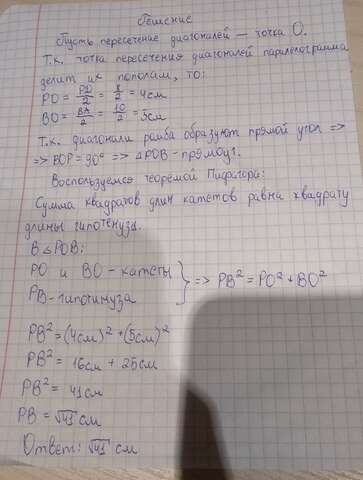 Решение
Пусть пересечение диагоналей — точка O.
Т.к. точка пересечения диагоналей паралелограмма
делит их пополам, то:
PO = PD/2 = 8/2 = 4см
BO = BA/2 = 10/2 = 5см
Т.к. диагонали ромба образуют прямой угол =>
=> BOP = 90° => △POB - прямоуг.
Воспользуемся теоремой Пифагора:
Сумма квадратов длин катетов равна квадрату
длины гипотенуза.
В △POB:
PO и BO - катеты
PB - гипотинуза } => PB² = PO² + BO²
PB² = (4см)² + (5см)²
PB² = 16см + 25см
PB² = 41см
PB = √41 см
Ответ: √41 см